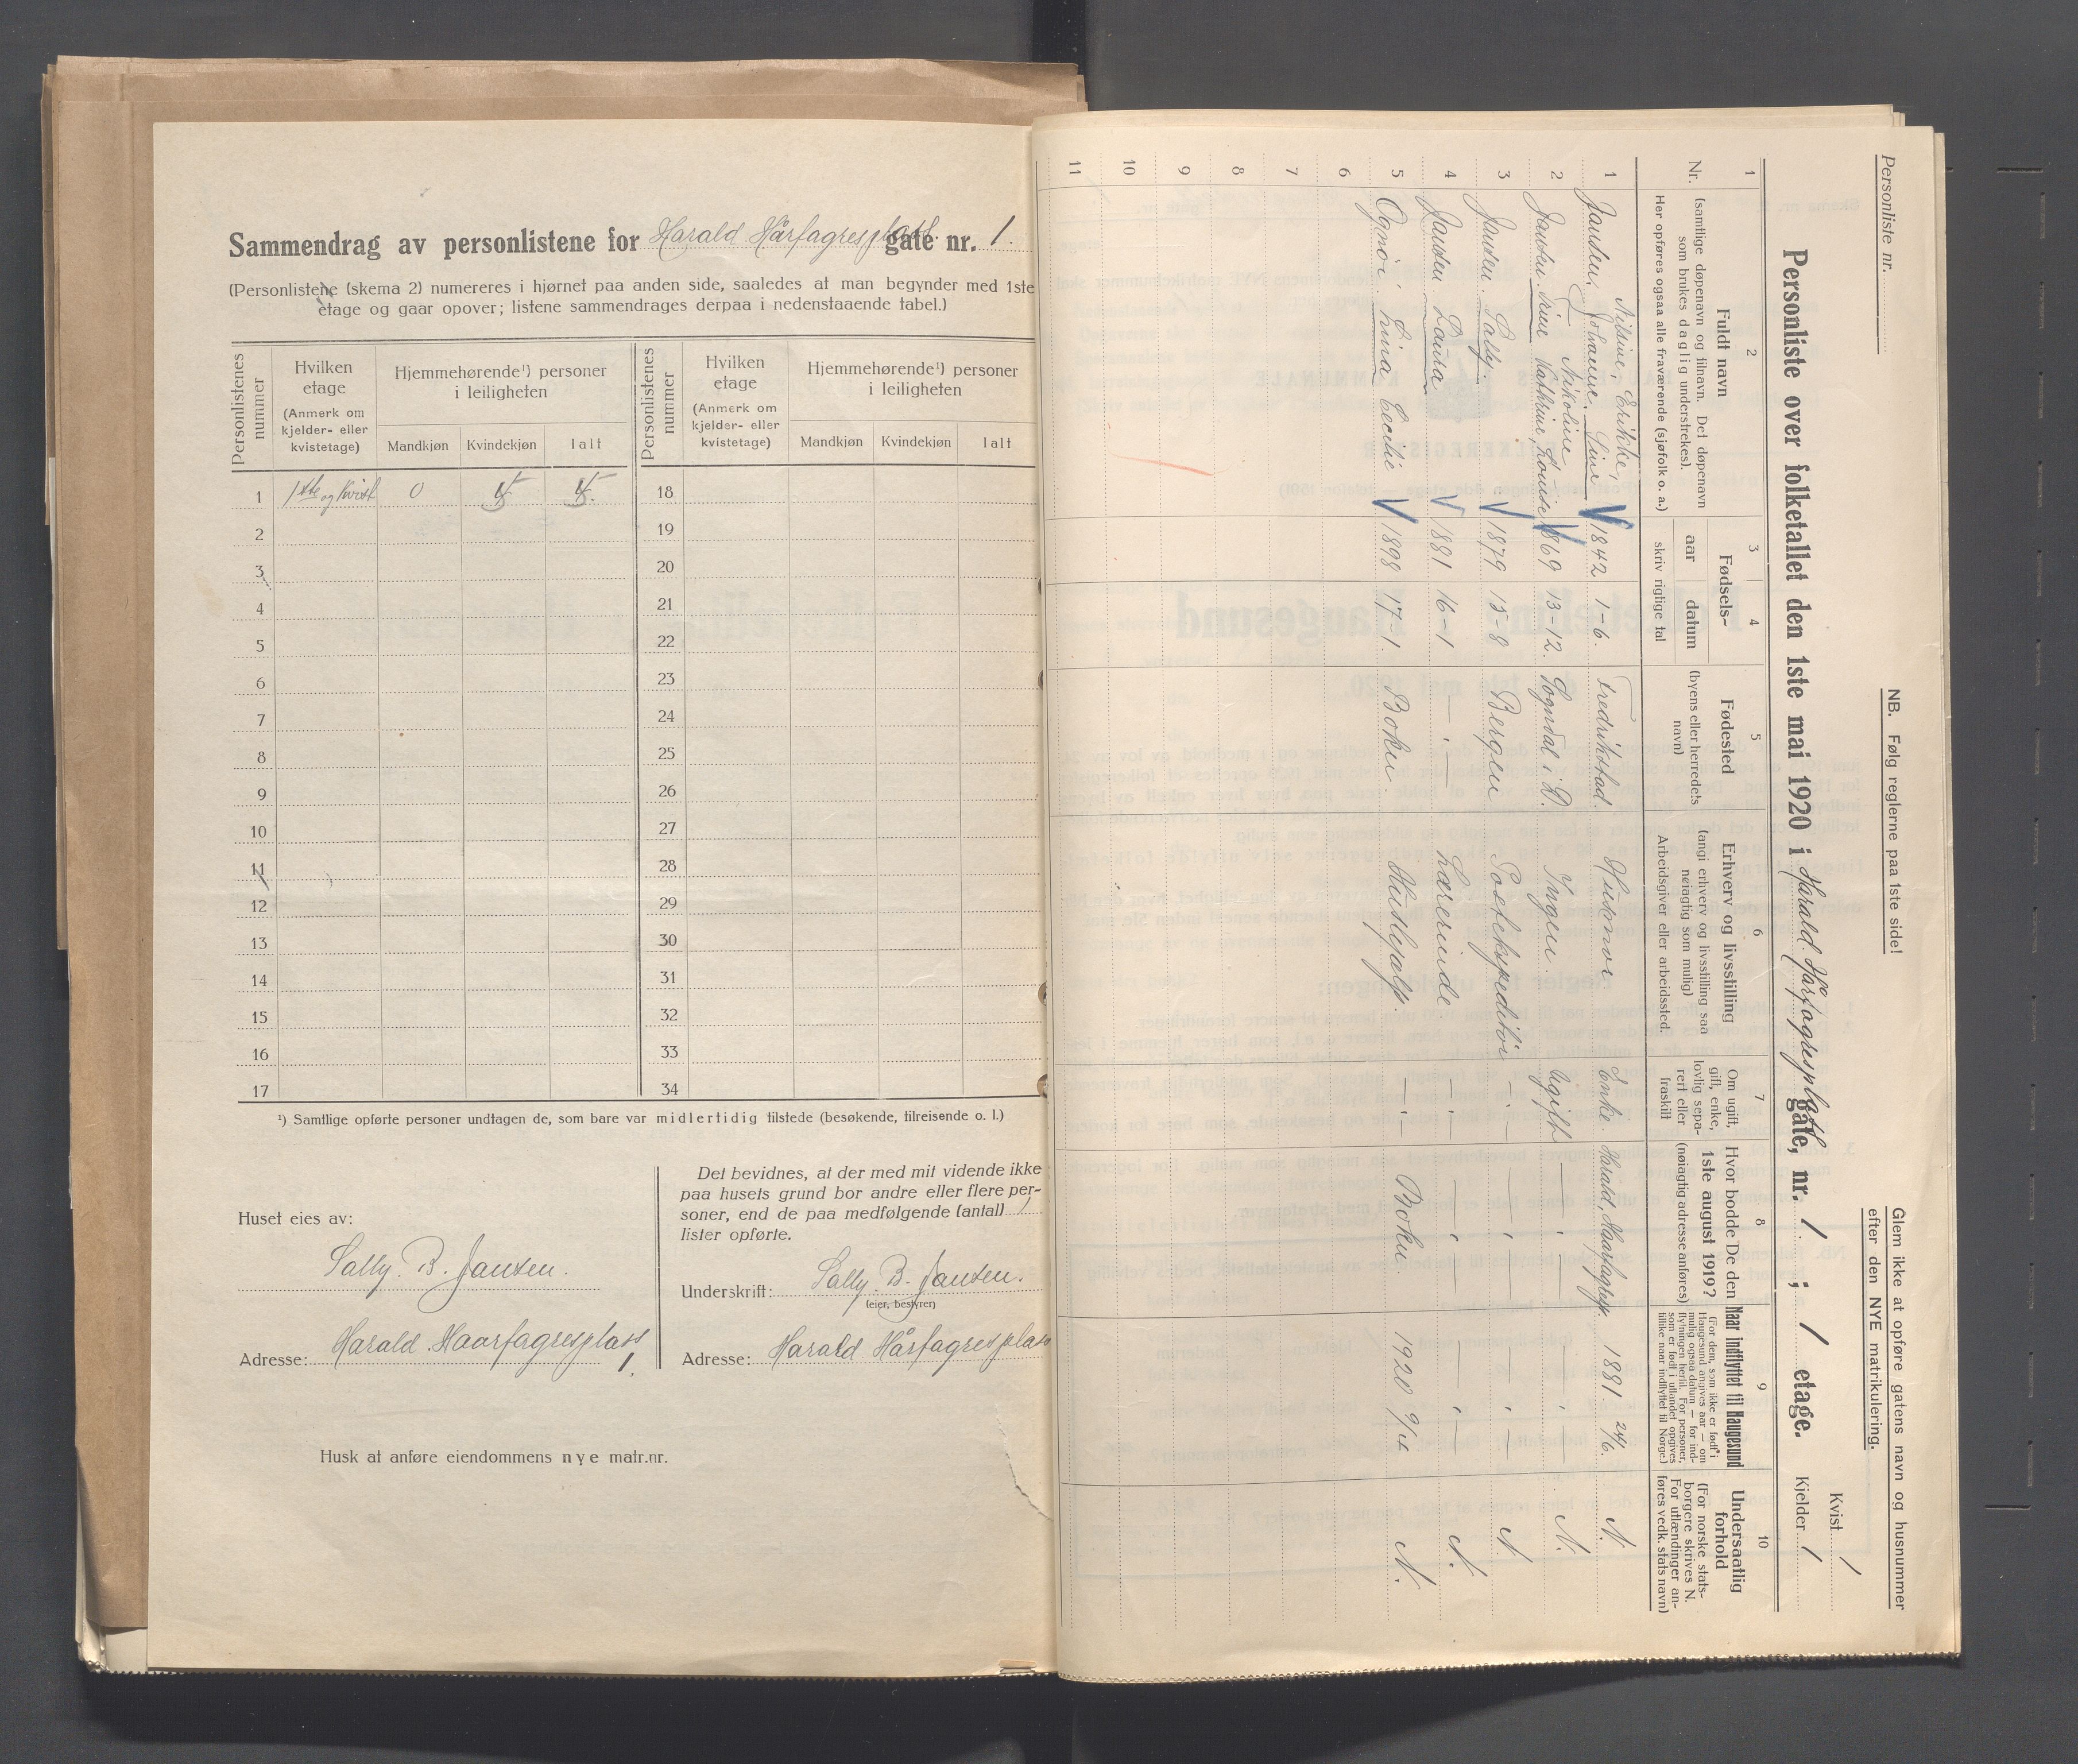 Sammendrag av personlistene for Harald Hårfagresplass gate nr. 1.
(Personlistene (skema 2) numereres i hjørnet paa anden side, saaledes at man begynder med 1ste
etage og gaar opover; listene sammendrages derpaa i nedenstaaende tabel.)
Personlistenes nummer
Hvilken etage (Anmerk om kjelder- eller kvistetage)
Hjemmehørende¹) personer i leiligheten
Mandkjøn Kvindekjøn Ialt
Personlistenes nummer
Hvilken etage (Anmerk om kjelder- eller kvistetage)
Hjemmehørende¹) personer i leiligheten
Mandkjøn Kvindekjøn Ialt
1 1ste og Kvist 0 5 5. 18
2 19
3 20
4 21
5 22
6 23
7 24
8 25
9 26
10 27
11 28
12 29
13 30
14 31
15 32
16 33
17 34
¹) Samtlige opførte personer undtagen de, som bare var midlertidig tilstede (besøkende, tilreisende o. l.)
Huset eies av:
Sally B. Jansen.
Adresse: Harald Haarfagresplass
1.
Det bevidnes, at der med mit vidende ikke
paa husets grund bor andre eller flere per-
soner, end de paa medfølgende (antal) 1
lister opførte.
Underskrift: Sally B. Jansen.
(eier, bestyrer)
Adresse: Harald Hårfagresplass
Husk at anføre eiendommens nye matr.nr.
Personliste nr.
NB. Følg reglerne paa 1ste side!
Glem ikke at opføre gatens navn og husnummer
efter den NYE matrikulering.
Personliste over folketallet den 1ste mai 1920 i Harald Hårfagresplass gate, nr. 1 ; 1 etage.
Kvist 1
Kjelder 1
1 2 3 4 5 6 7 8 9 10
Nr.
Fuldt navn
(samtlige døpenavn og tilnavn. Det døpenavn
som brukes daglig understrekes).
Her opføres ogsaa alle fraværende (sjøfolk o. a.)
Fødsels-
aar datum
skriv riglige tal
Fødested
(byens eller herredets
navn)
Erhverv og livsstilling
(angi erhverv og livsstilling saa
nøiagtig som mulig)
Arbeidsgiver eller arbeidssted.
Om ugift,
gift, enke,
lovlig sepa-
rert eller
fraskilt
Hvor bodde De den
1ste august 1919?
(nøiagtig adresse anføres)
Naar indflyttet til Haugesund
(For dem, som ikke er født i
Haugesund angives aar — om
mulig ogsaa datum — for ind-
flytningen hertil. For personer,
som er født i utlandet opgives
tillike naar indflyttet til Norge.)
Undersaatlig
forhold
(For norske stats-
borgere skrives N.
For utlændinger an-
føres vedk. stats navn)
Nilsine, Erikke,
1 Jansen, Johanne. Sine 1842 1-6. Fredrikstad. Husmor Enke Harald Haarfagrespl. 1881 24/6. N.
Nikoline
2 Jansen Trine Kathrine, Louise 1869 13-12. Sogndal i D. Ingen. Ugift — " — — " — N.
3 Jansen Sally. 1879 13-8 Bergen Postekspeditør — " — — " — — " — N.
4 Jansen Laura 1881 16-1 — " — Lærerinde — " — — " — — " — N.
5 Ognøi, Lina Cecilie 1898 17-1. Bokn Hushjælp. — " — Bokn. 1920 9/4 N.
6
7
8
9
10
11